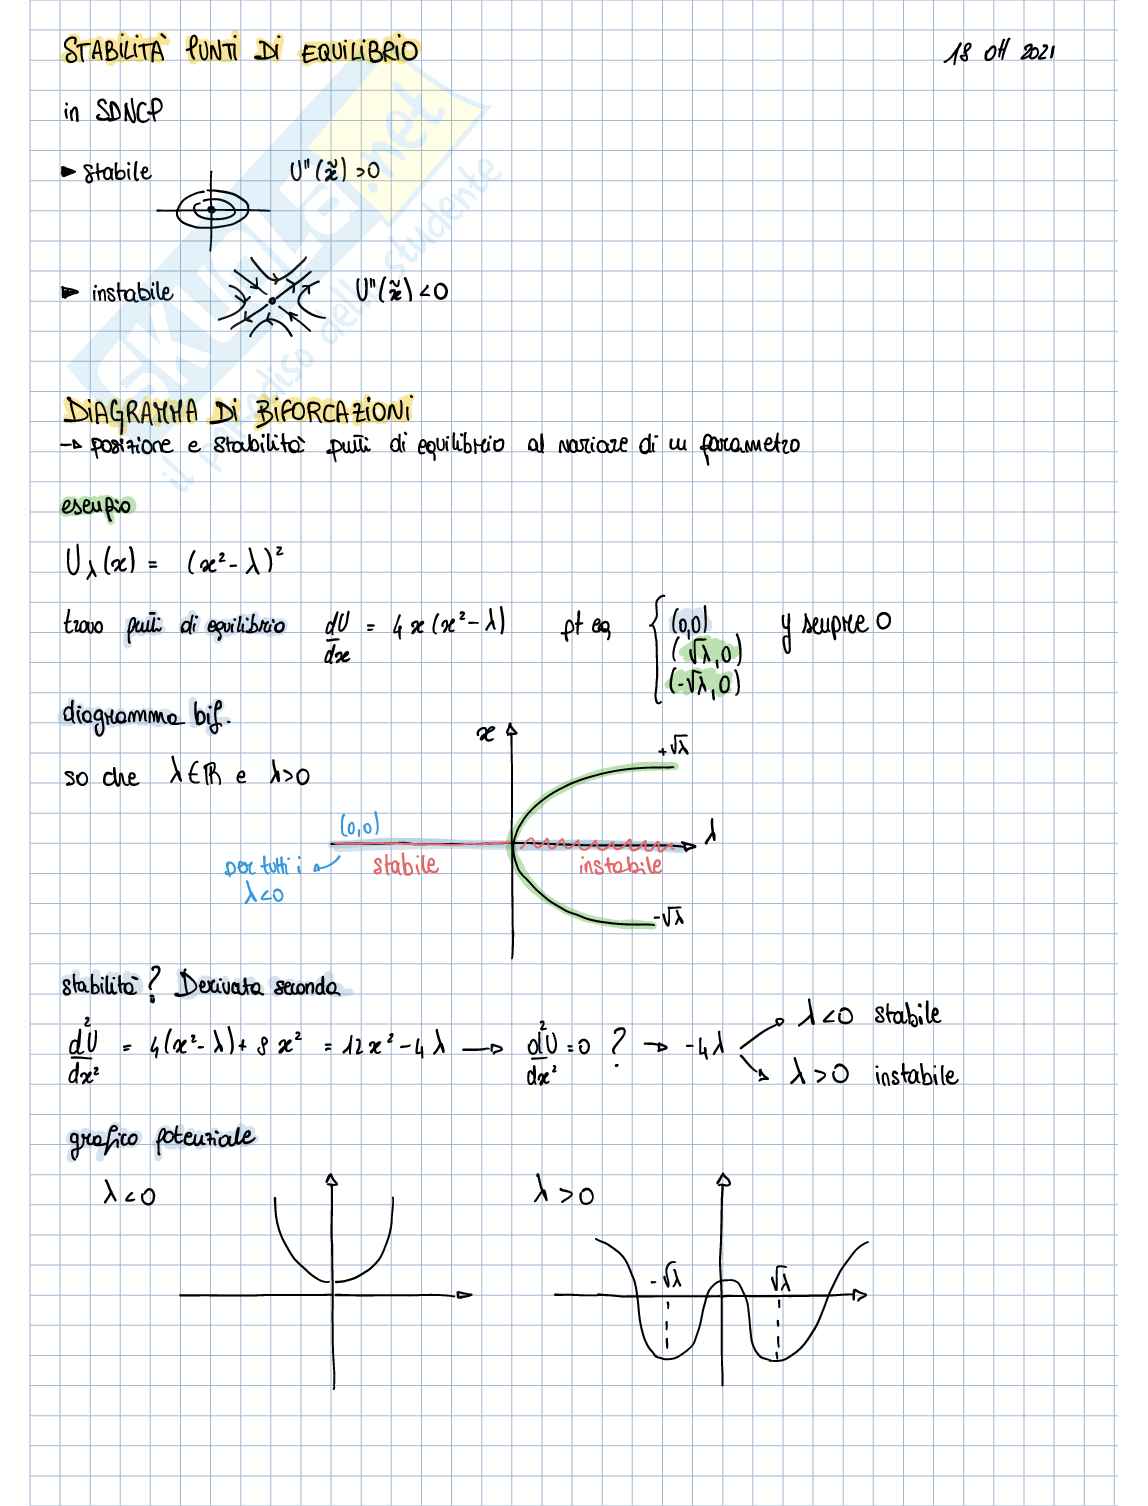 STABILITÀ PUNTI DI EQUILIBRIO 18 Ott 2021
in SDNCP
► stabile U"(x̃) >0
► instabile U"(x̃) <0
DIAGRAMMA DI BIFORCAZIONI
→ posizione e stabilità punti di equilibrio al variare di un parametro
esempio
U_λ(x) = (x² - λ)²
trovo punti di equilibrio dU/dx = 4x(x² - λ) pt eq { (0,0) y sempre 0
(√λ,0)
(-√λ,0)
diagramma bif.
x +√λ
so che λ∈ℝ e λ>0
(0,0) λ
per tutti i stabile instabile
λ<0
-√λ
stabilità? Derivata seconda
d²U/dx² = 4(x²-λ) + 8x² = 12x² - 4λ → d²U/dx² = 0 ? → -4λ λ<0 stabile
λ>0 instabile
grafico potenziale
λ<0 λ>0
-√λ √λ
SKUOLA.net
il paradiso dello studente